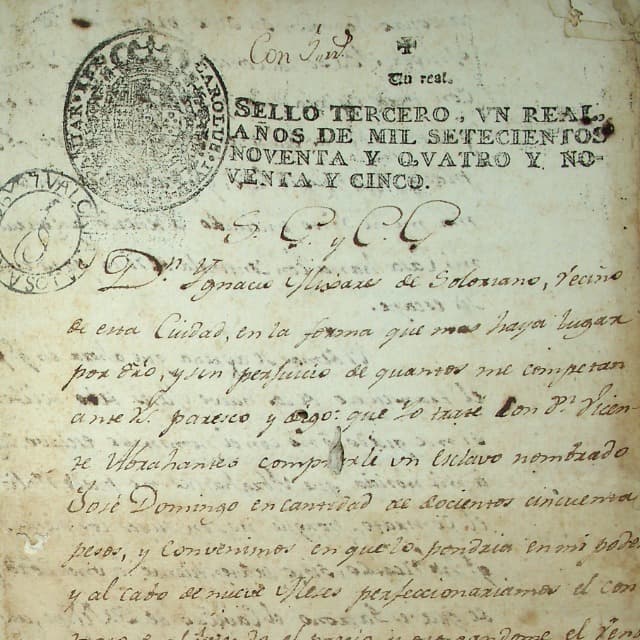 Un real.
SELLO TERCERO, VN REAL,
AÑOS DE MIL SETECIENTOS
NOVENTA Y QVATRO Y NO-
VENTA Y CINCO.
CAROLUS
S. G. y C. G
Dn. Ygnacio Mixares de Solorzano, Vecino
de esta Cuidad, en la forma que mas haya lugar
por dro, y sin perjuicio de quantos me competan
ante V. paresco y digo: que yo traté con Dn. Vicen
te Abrahantes comprarle vn esclavo nombrado
José Domingo en cantidad de docientos cincuenta
pesos, y convenimos en que lo pondria en mi poder
y al cabo de nueve Meses perfeccionariamos el con